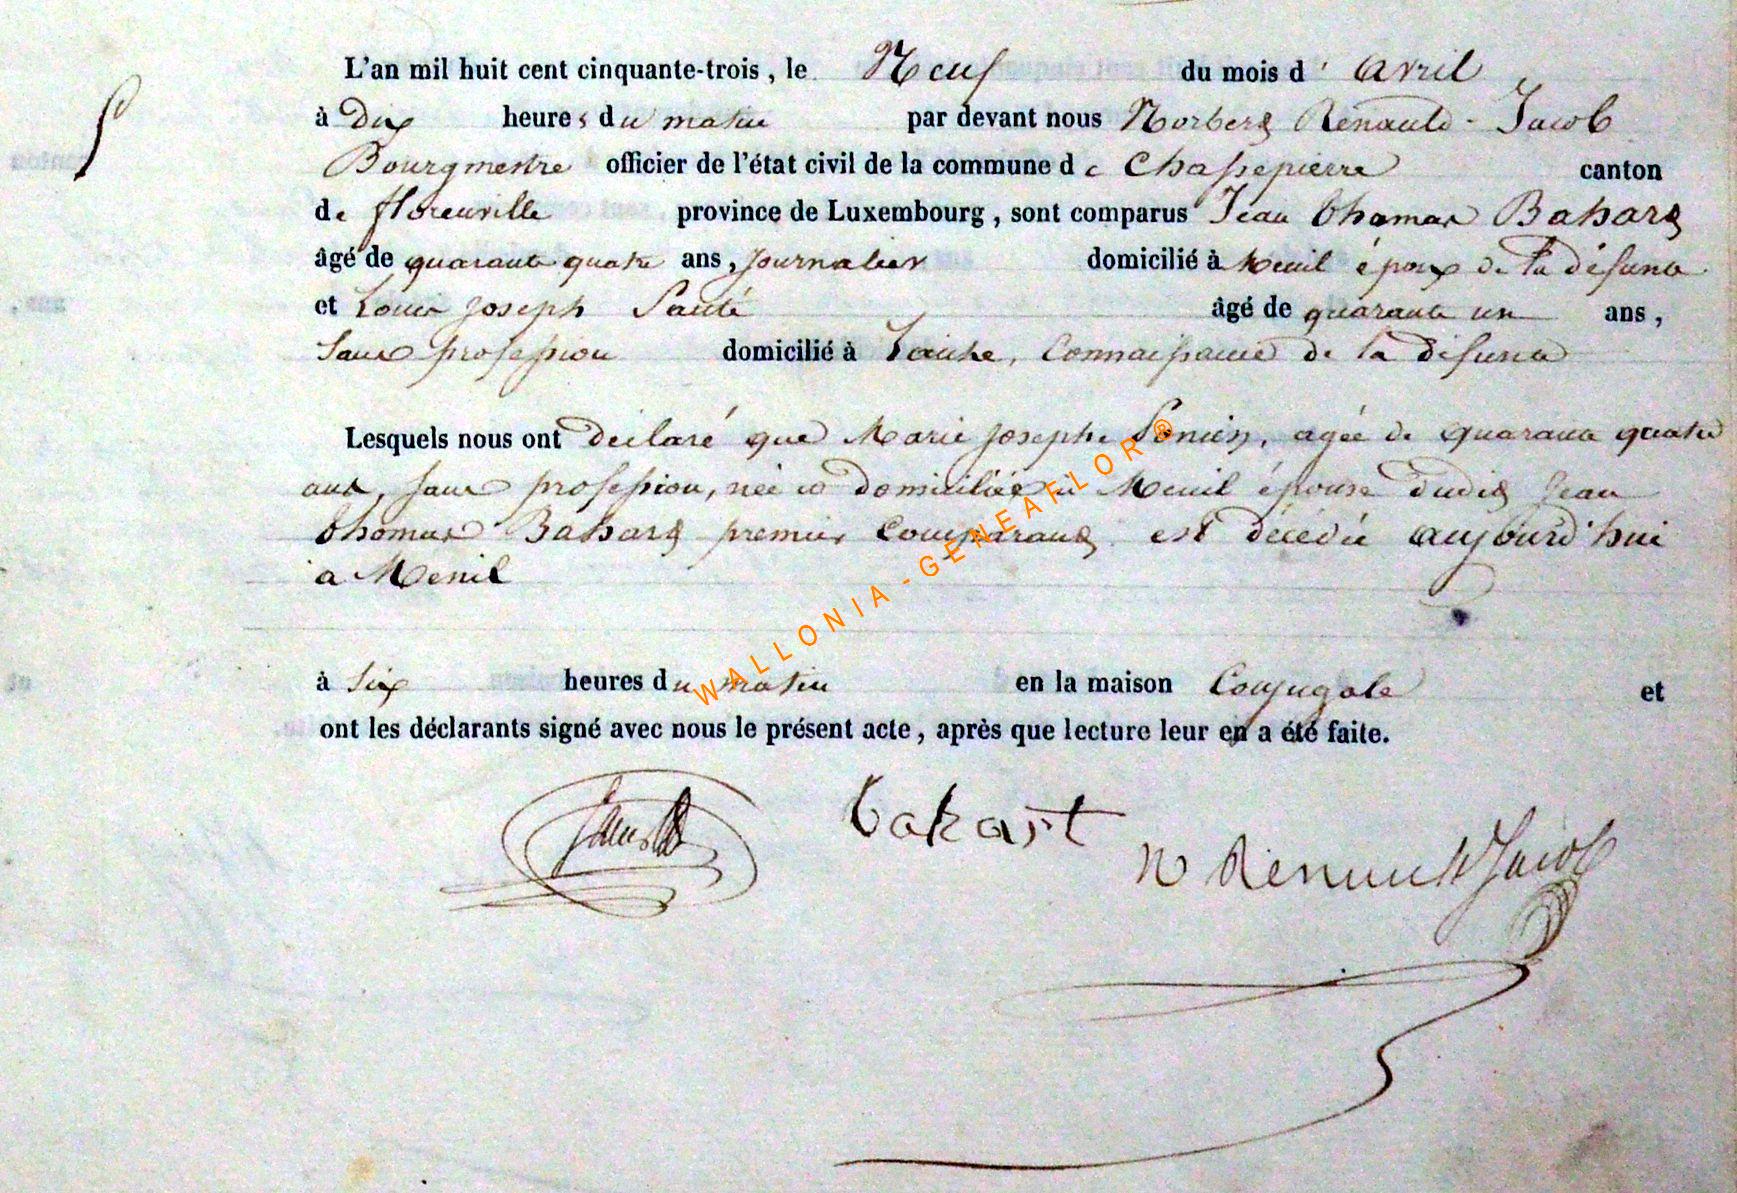 L'an mil huit cent cinquante-trois, le Neuf du mois d'avril
à Dix heures du matin par devant nous Norbert Renauld-Jacob
Bourgmestre officier de l'état civil de la commune de Chassepierre canton
de florenville province de Luxembourg, sont comparus Jean thomas Bakart
âgé de quarante quatre ans, journalier domicilié à Menil époux de la défunte
et Louis joseph âgé de quarante un ans,
Sans profession domicilié à Laiche, Connaissance de la défunte
Lesquels nous ont déclaré que Marie josephe agée de quarante quatre
ans, sans profession, née et domiciliée à Menil épouse dudit Jean
thomas Bakart premier Comparant est décédée aujourd'hui
a Menil
à Six heures du matin en la maison Conjugale et
ont les déclarants signé avec nous le présent acte, après que lecture leur en a été faite.
bakart
N Renauld Jacob
WALLONIA - GENEAFLOR ®